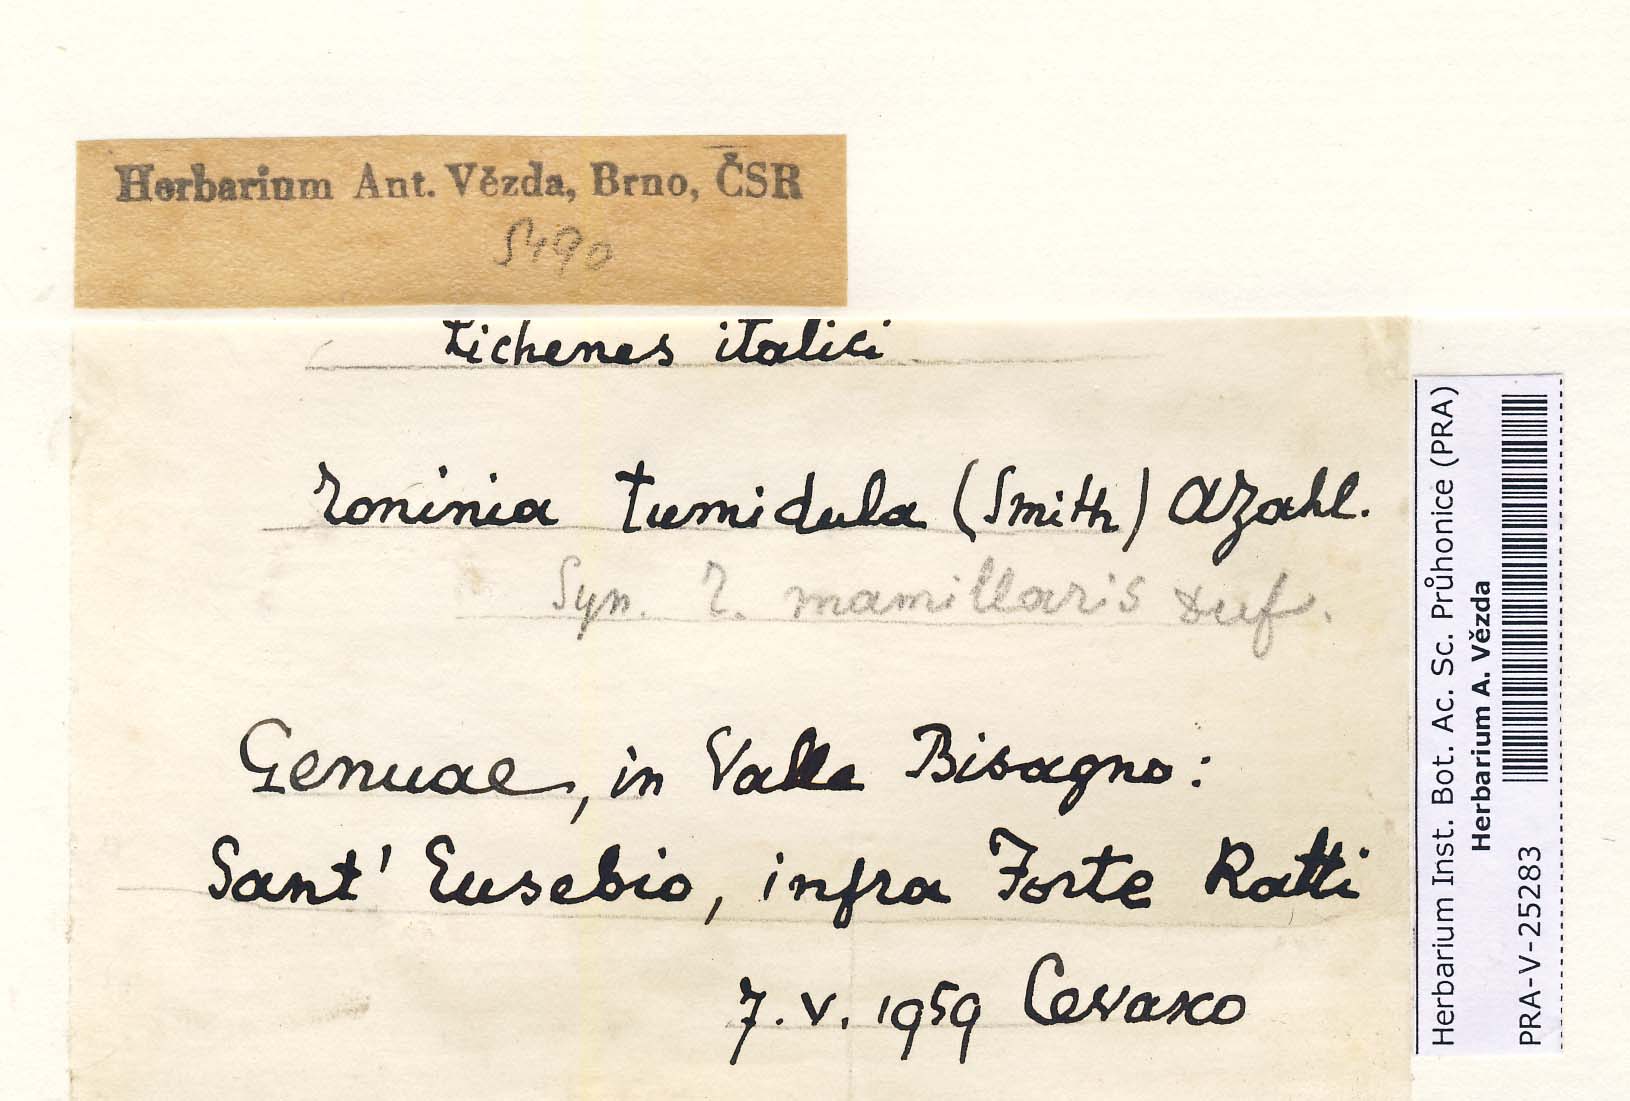 Herbarium Ant. Vězda, Brno, ČSR
5490
Lichenes italici
Toninia tumidula (Smith) AZahl.
Syn. T. mamillaris Duf.
Genuae, in Valle Bisagno:
Sant' Eusebio, infra Forte Ratti
7. V. 1959 Cevasco
Herbarium Inst. Bot. Ac. Sc. Průhonice (PRA)
Herbarium A. Vězda
PRA-V-25283